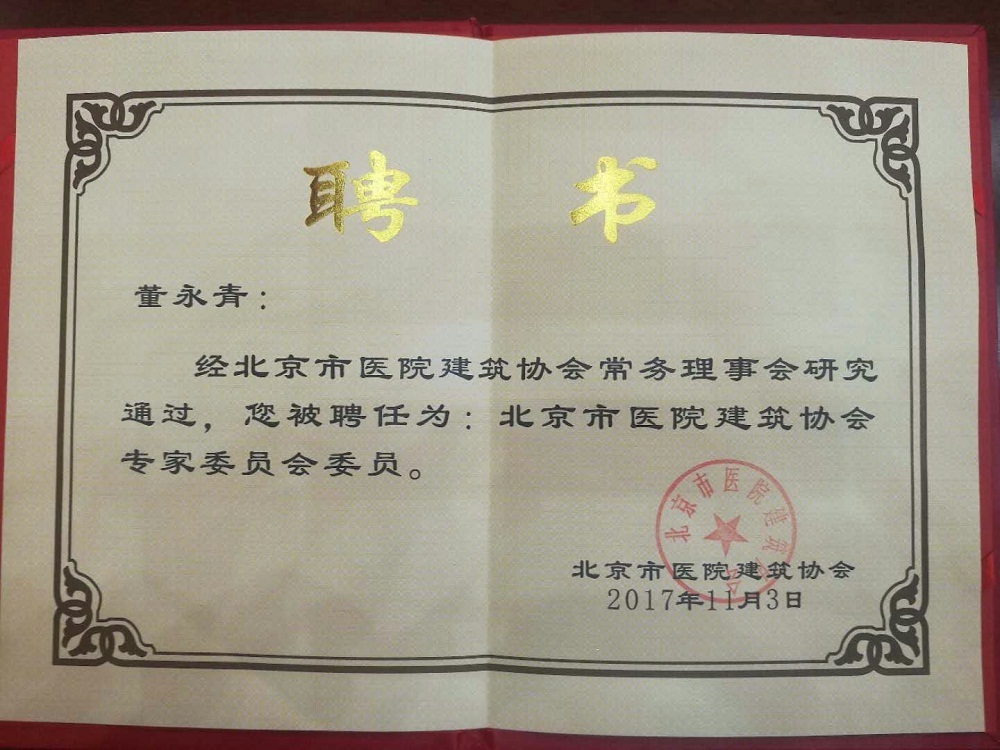 聘 书
董永青：
经北京市医院建筑协会常务理事会研究
通过，您被聘任为：北京市医院建筑协会
专家委员会委员。
北京市医院建筑协会
北京市医院建筑协会
2017年11月3日